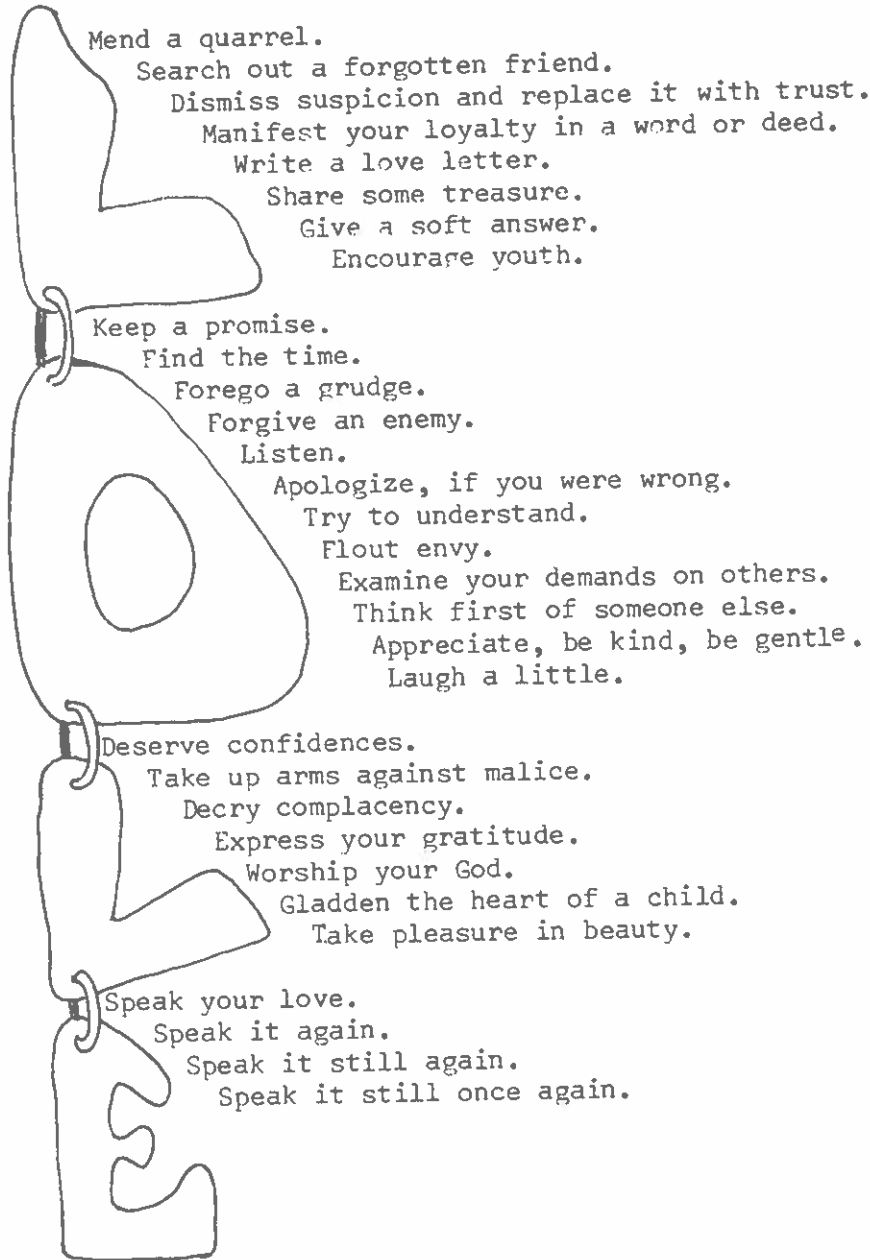 Mend a quarrel.
Search out a forgotten friend.
Dismiss suspicion and replace it with trust.
Manifest your loyalty in a word or deed.
Write a love letter.
Share some treasure.
Give a soft answer.
Encourage youth.
Keep a promise.
Find the time.
Forego a grudge.
Forgive an enemy.
Listen.
Apologize, if you were wrong.
Try to understand.
Flout envy.
Examine your demands on others.
Think first of someone else.
Appreciate, be kind, be gentle.
Laugh a little.
Deserve confidences.
Take up arms against malice.
Decry complacency.
Express your gratitude.
Worship your God.
Gladden the heart of a child.
Take pleasure in beauty.
Speak your love.
Speak it again.
Speak it still again.
Speak it still once again.
LOVE